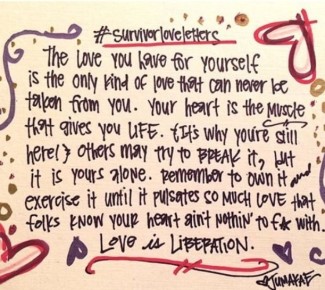 #survivorloveletters
The Love you have for yourself
is the only kind of love that can never be
taken from you. Your heart is the Muscle
that gives you LIFE. (It's why you're still
here!) Others may try to BREAK it, but
it is yours alone. Remember to own it and
exercise it until it pulsates so much LOVE that
folks KNOW your heart ain't nothin' to f*k with.
LOVE is LIBERATION.